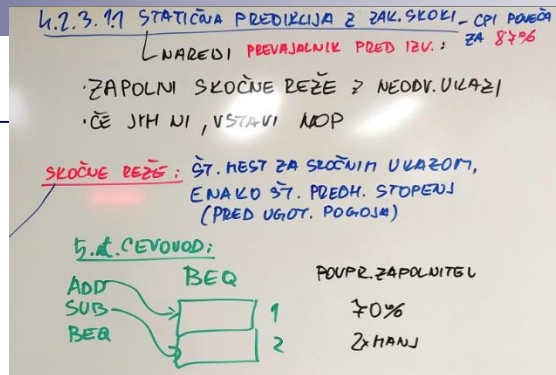 4.2.3.1.1 STATIČNA PREDIKCIJA Z ZAK. SKOKI - CPI POVEČA
ZA 87%
NAREDI PREVAJALNIK PRED IZV.:
· ZAPOLNI SKOČNE REŽE Z NEODV. UKAZI
· ČE JIH NI, VSTAVI NOP
SKOČNE REŽE: ŠT. MEST ZA SKOČNIM UKAZOM,
ENAKO ŠT. PREDH. STOPENJ
(PRED UGOT. POGOJA)
5. st. CEVOVOD:
BEQ POVPR. ZAPOLNITEV
ADD
SUB 1 70%
BEQ 2 2x MANJ